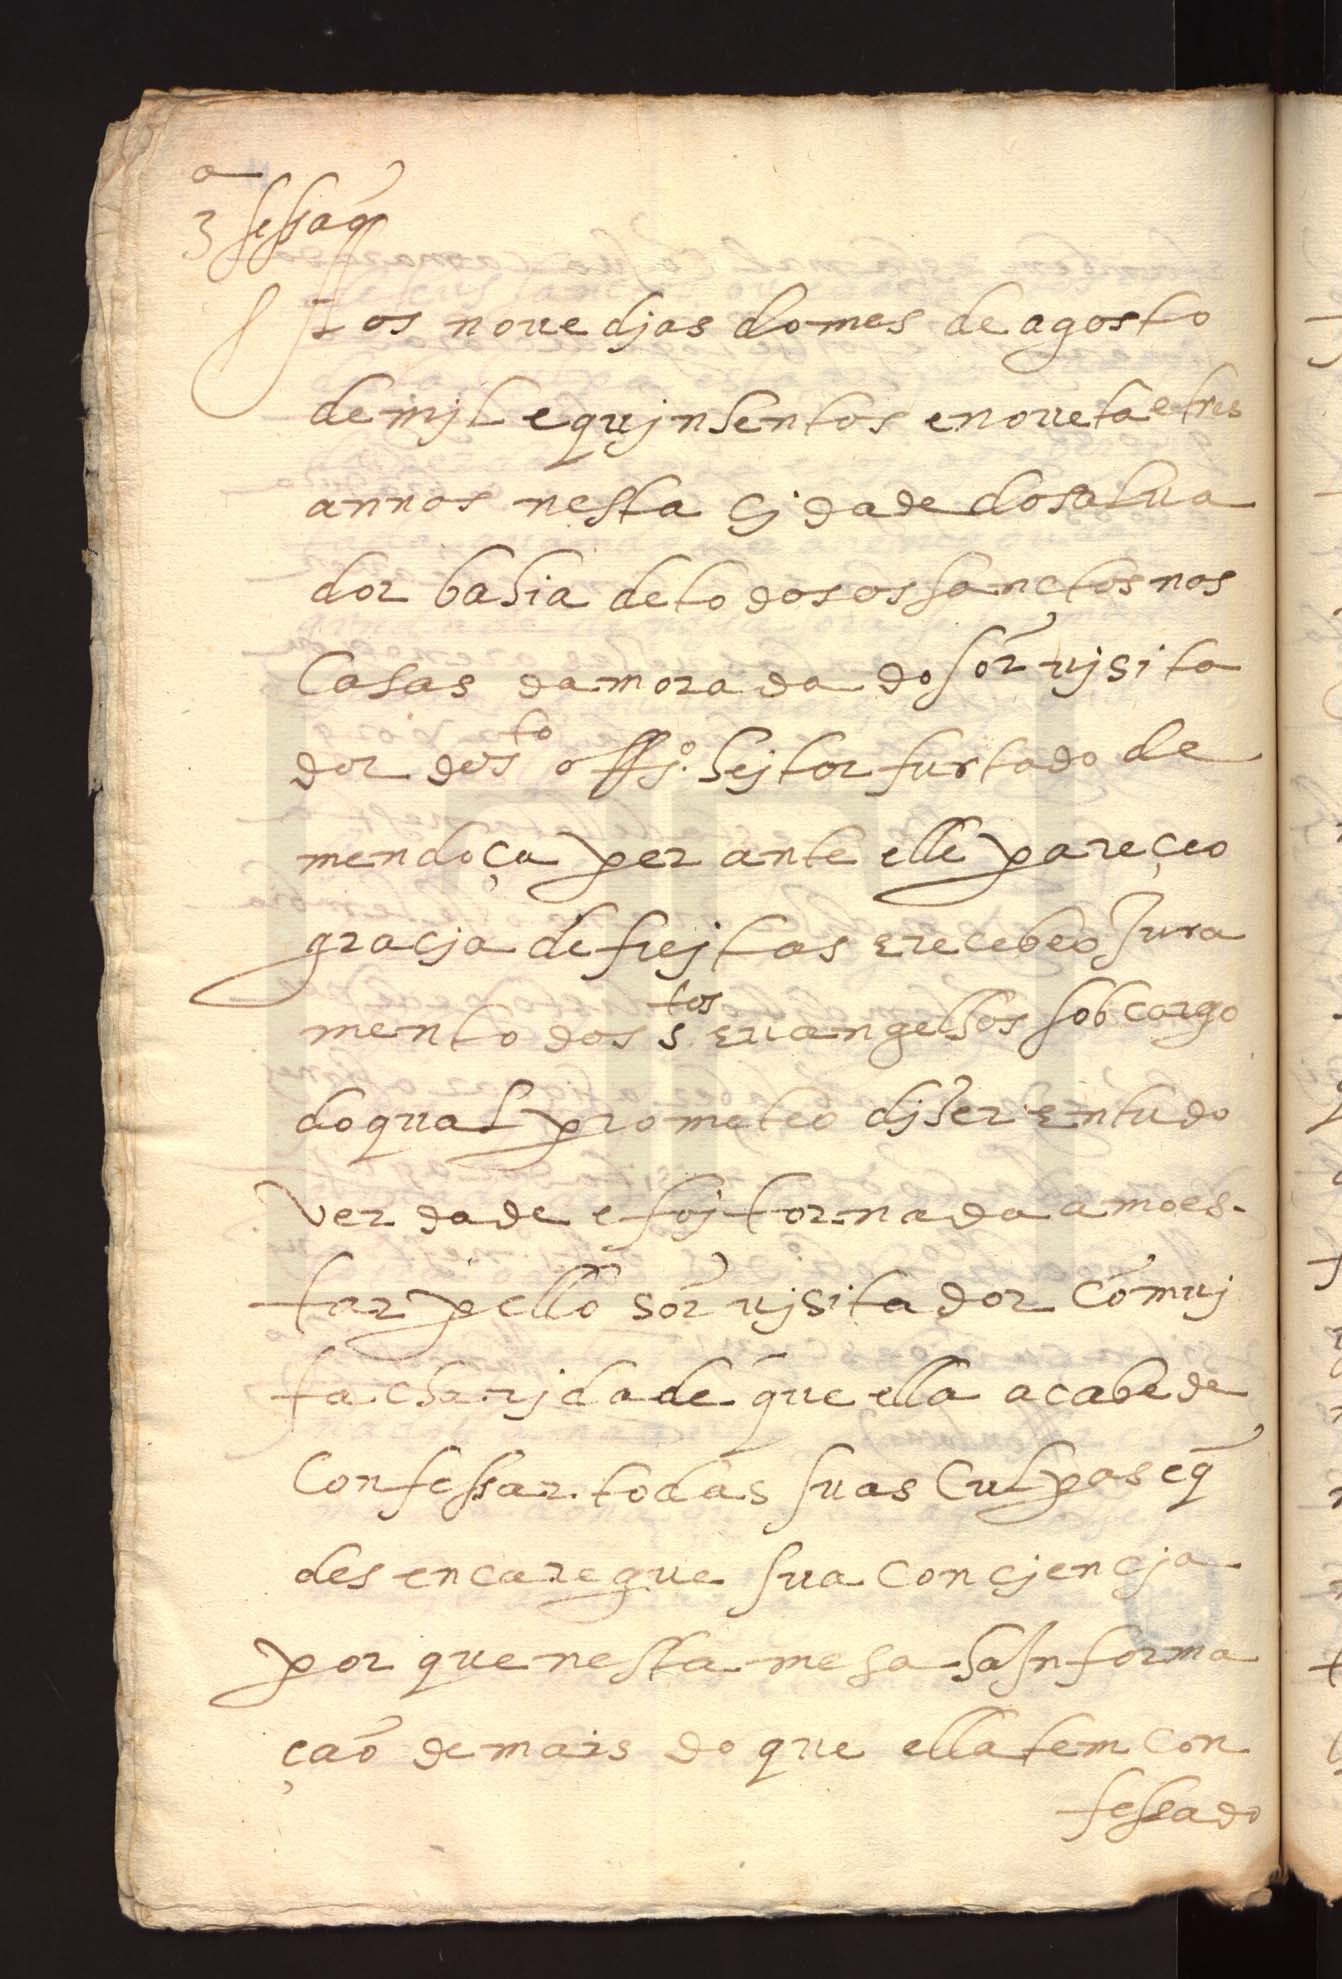 3ª sessaõ
Aos noue djas do mes de agosto
de mjl e qujnhentos e noueta e tres
annos nesta cjdade do salua
dor bahia de todos os sanctos nas
casas da morada do sõr ujsita
dor do sto offjº. hejtor furtado de
mendoça per ante elle pareçeo
gracja de frejtas e recebeo jura
mento dos stos euangelhos sob cargo
do qual prometeo djzer em tudo
verdade e foj tornada amoes-
tar pello sõr ujsitador cõ muj
ta charjdade que ella acabe de
confessar todas suas culpas e q̃
desencaregue sua concjencja
por que nesta mesa ha jnforma
çaõ de mais do que ella tem con
fessado